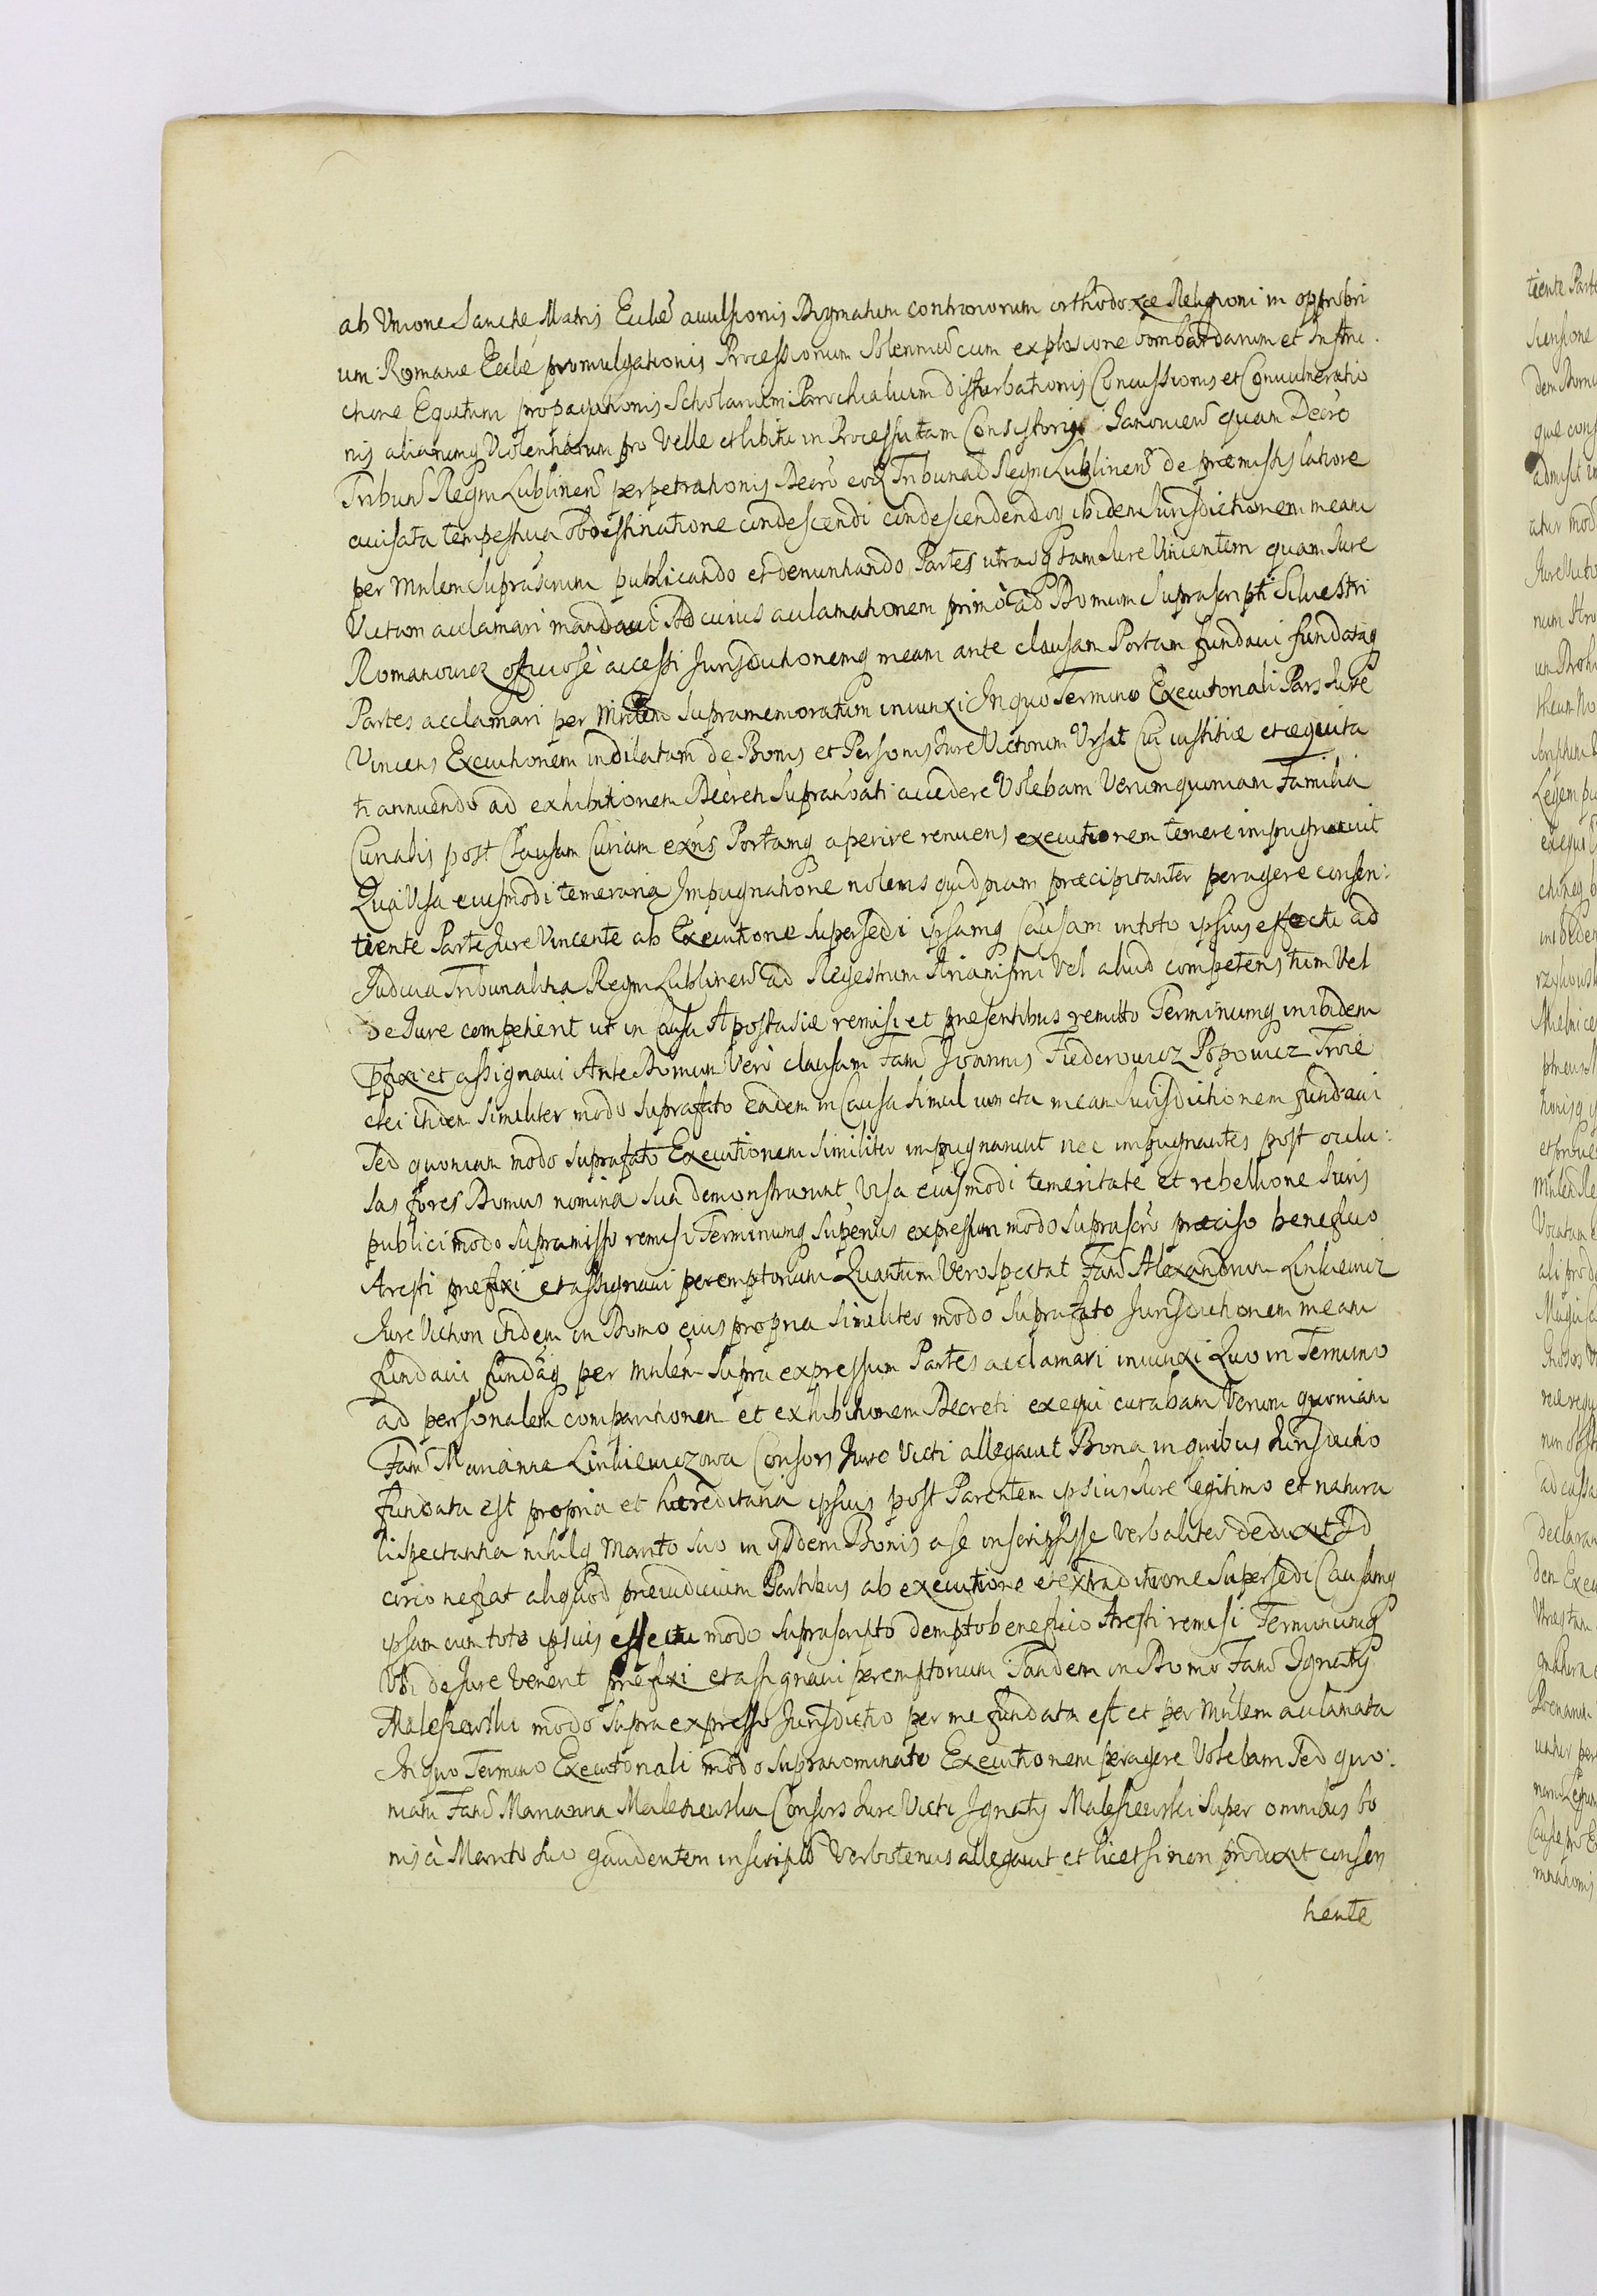 ab Unione Sanctae Matris Ecclae avulsionis Dogmatum contrariorum orthodoxae Religioni in opprobri
um Romanae Ecclae promulgationis Processionum Solennium cum explosione bombardarum et Instru
ctione Equitum propagationis Scholarum Parochialium disturbationis Concussionis et Convulneratio
nis aliarumq Violentiarum pro Velle et libitu in Processu tam Consistorij Janovien quam Decro
Tribunl Regni Lublinens perpetrationis Decro eodem Tribunal Regni Lublinens de praemissis latiore
avisata tempestiva obdestinatione condescendi condescendendoq ibidem Jurisdictionem meam
per Mnlem Suprascrum publicando et denuntiando Partes utrasq tam Jure Vincentem quam Jure
Victam acclamari mandavi Ad cuius acclamationem primo ad Domum Suprascripti Silvestri
Romanowicz officiose accessi Jurisdictionemq meam ante clausam Portam fundavi fundataq
Partes acclamari per Mnlem Supramemoratum iniunxi In quo Termino Executoriali Pars Jure
Vincens Executionem indilatam de Bonis et Personis Jure Victorum Ursit Cui iustitiae et aequita
ti annuendo ad exhibitionem Decreti Supranoati accedere Volebam Verum quoniam Familia
Curialis post Clausam Curiam exns Portamq aperire renuens executionem temere impugnavit
Qua Visa eiusmodi temeraria Impugnatione nolens quidpiam praecipitanter peragere consen:
tiente Parte Jure Vincente ab Executione Supersedi ipsamq Causam in toto ipsius effectu ad
Judicia Tribunalitia Regni Lublinens ad Regestrum Arianismi Vel aliud competens tum Vel
de Jure competierit ut in Causa Apostasiae remisi et praesentibus remitto Terminumq inibidem
pfixi et assignavi Ante Domum Vero clausam Fam Joannis Fiederowicz Popowicz Troie
ckei itidem Similiter modo Suprafato Eadem in Causa Simul iuncta meam Jurisdictionem fundavi
Sed quoniam modo Suprafato Executionem Similiter impugnarunt nec impugnantes post occlu:
sas fores Domus nomina sua demonstrarunt Visa eiusmodi temeritate et rebellione Juris
publici modo Supramisso remisi Terminumq Superius expressum modo Suprascro praeciso beneficio
Aresti praefixi et assignavi peremptorium Quantum Vero spectat Fam Alexandrum Linkiewicz
Jure Victum itidem in Domo eius propria Similiter modo Suprafato Jurisdictionem meam
fundavi fundaq per Mnlem Supra expressum Partes acclamari iniunxi Quo in Termino
ad personalem comparitionem et exhibitionem Decreti exequi curabam Verum quoniam
Fam Marianna Linkiewiczowa Consors Jure Victi allegavit Bona in quibus Jurisdictio
fundata est propria et haereditaria ipsius post Parentem ipsius Jure legitimo et natura
li spectantia nihilq Marito Suo in ijsdem Bonis a se inscripsisse Verbaliter deduxit Id
circo ne fiat aliquod praeiudicium Partibus ab executione et extraditione Supersedi Causamq
ipsam cum toto ipsius effectu modo Suprascripto dempto beneficio Aresti remisi Terminumq
Ubi de Jure Venerit praefixi et assignavi peremptorium Tandem in Domo Fam Ignatij
Maleszewski modo Supra expresso Jurisdictio per me fundata est et per Mnlem acclamata
In quo Termino Executoriali modo Supranominato Executionem peragere Volebam Sed quo:
niam Fam Marianna Maleszewska Consors Jure Victi Ignatij Maleszewski Super omnibus bo
nis à Marito Suo gaudentem inscriptio Verbotenus allegavit et licet si non produxit consen
tiente